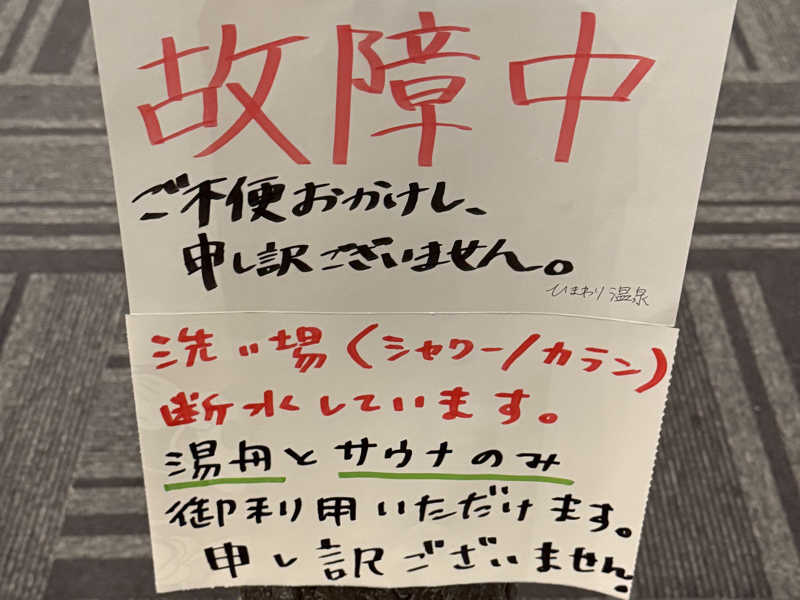 故障中
ご不便おかけし、
申し訳ございません。
ひまわり温泉
洗い場(シャワー/カラン)
断水しています。
湯舟とサウナのみ
御利用いただけます。
申し訳ございません。